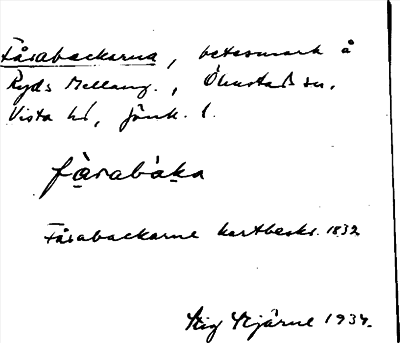 Fårabackarna, betesmark å
Ryds Mellang., Ölmstad sn,
Vista hd, Jönk. l.
fårabàka
Fårabackarne kartbeskr. 1832
Stig Stjärne 1934.